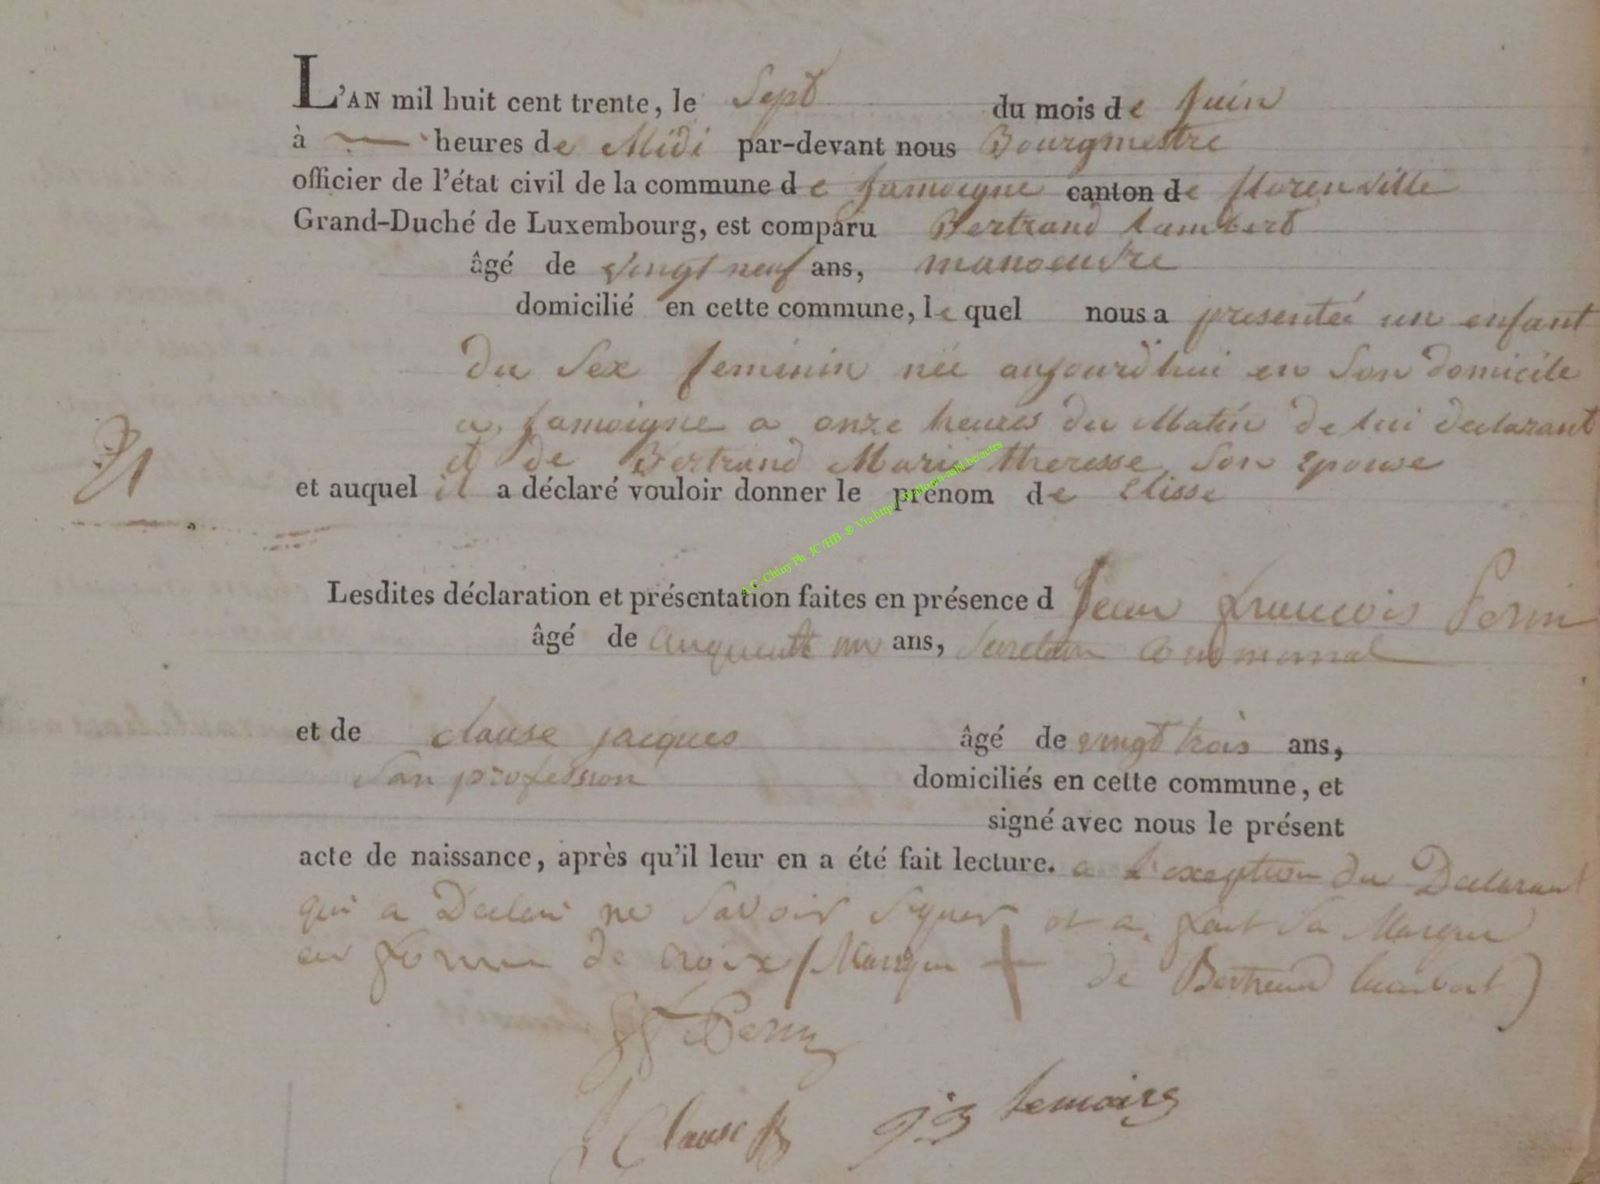 L'AN mil huit cent trente, le Sept du mois de Juin
à heures de Midi par-devant nous Bourgmestre
officier de l'état civil de la commune de Jamoigne canton de florenville
Grand-Duché de Luxembourg, est comparu Bertrand Lambert
âgé de vingt neuf ans, manoeuvre
domicilié en cette commune, le quel nous a presentée un enfant
du Sex feminin née aujourd'hui en Son domicile
a Jamoigne a onze heures du Matin de lui declarant
et de Bertrand Marie theresse Son Epouse
et auquel il a déclaré vouloir donner le prénom de Elisse
21
A.C. Chiny Ph. JC/HB ©
Lesdites déclaration et présentation faites en présence d Jean François Perin
âgé de cinquante un ans, communal
et de Clause jacques âgé de vingt trois ans,
San profession domiciliés en cette commune, et
signé avec nous le présent
acte de naissance, après qu'il leur en a été fait lecture. a l'exception du Declarant
qui a Declare ne Savoir Signer et a fait Sa Marque
en forme de croix (Marque + de Bertrand Lambert)
Perin
Clause